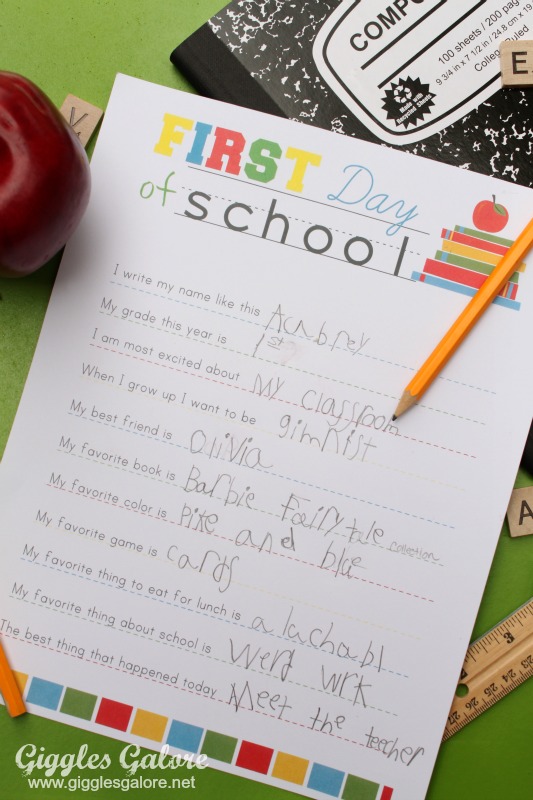 COMPO
100 sheets / 200 pag
9 3/4 in x 7 1/2 / 24.8 cm x 19
College Ruled
Made with Recycled Sheets
E
K
FIRST Day
of school
I write my name like this Acabrey
My grade this year is 1st
I am most excited about My classroom
When I grow up I want to be gimnist
My best friend is Olivia
My favorite book is Barbie Fairytale collection
My favorite color is Pike and blue
My favorite game is cards
My favorite thing to eat for lunch is a lachabl
My favorite thing about school is werd wrk
The best thing that happened today Meet the teacher
A
24 25 26 27
Giggles Galore
www.gigglesgalore.net